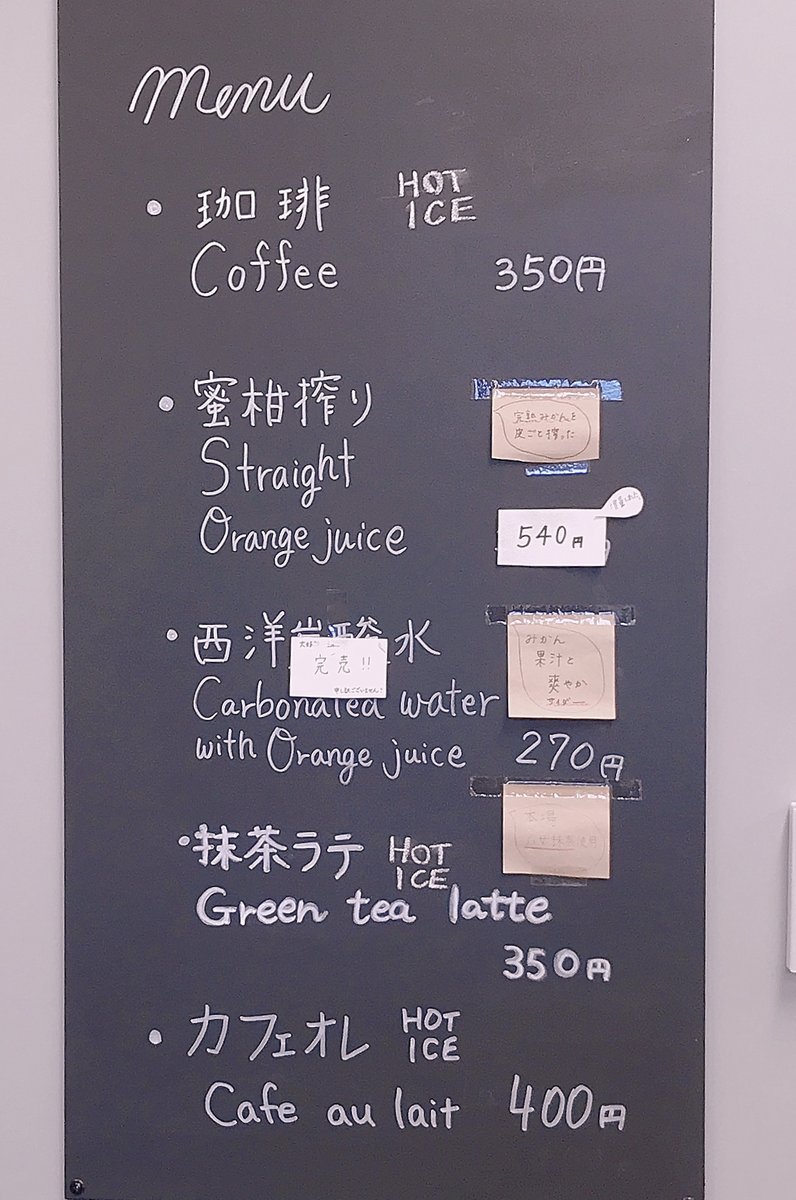 Menu
・珈琲 HOT
ICE
Coffee 350円
・蜜柑搾り
完熟みかんを
皮ごと搾った
Straight
Orange juice 540円
・西洋炭酸水
完売!!
申し訳ございません
みかん
果汁と
爽やか
サイダー
Carbonated water
with Orange juice 270円
・抹茶ラテ HOT
ICE
抹茶使用
Green tea latte
350円
・カフェオレ HOT
ICE
Cafe au lait 400円